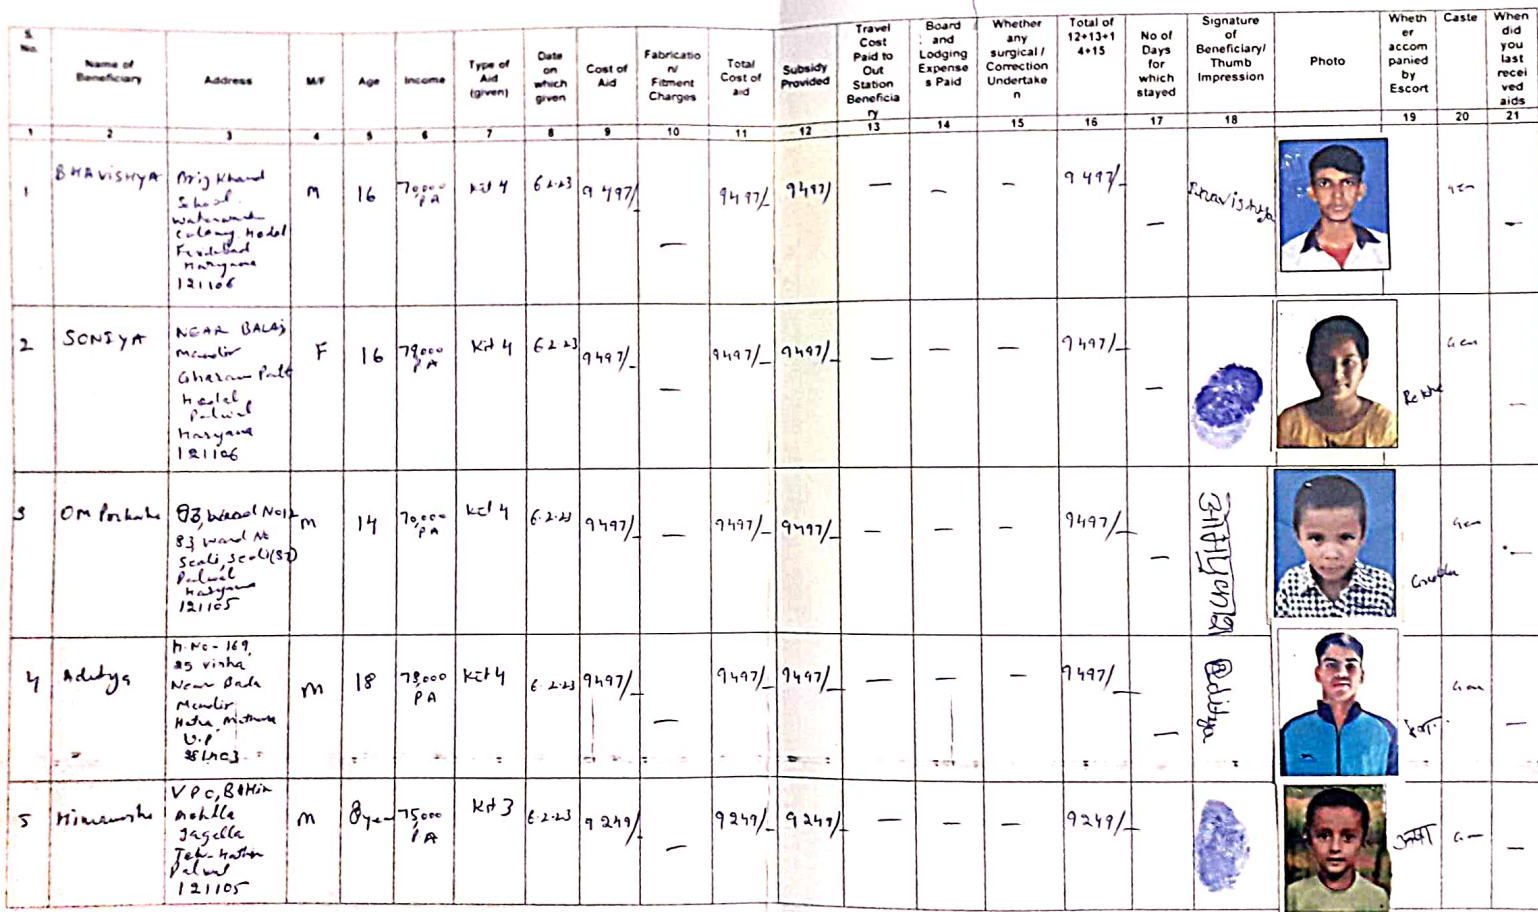 S. No.
Name of Beneficiary
Address
M/F
Age
Income
Type of Aid (given)
Date on which given
Cost of Aid
Fabricatio n/ Fitment Charges
Total Cost of aid
Subsidy Provided
Travel Cost Paid to Out Station Beneficia ry
Board and Lodging Expense s Paid
Whether any surgical / Correction Undertake n
Total of 12+13+1 4+15
No of Days for which stayed
Signature of Beneficiary/ Thumb Impression
Photo
Wheth er accom panied by Escort
Caste
When did you last recei ved aids
1 2 3 4 5 6 7 8 9 10 11 12 13 14 15 16 17 18 19 20 21
1 BHAVISHYA
Brij Khand
School
Colony Hodal
Faridabad
Haryana
121106
M 16 70,000 PA Kit 4 6.2.23 9497/- — 9497/- 9497/ — — — 9497/- — Bhavishya —
2 SONIYA
NEAR BALAJ
Mandir
Gharam Patt
Hodal
Palwal
Haryana
121106
F 16 78000 PA Kit 4 6.2.23 9497/- — 9497/- 9497/- — — — 9497/- — Rekha Gen —
3 OM Parkash
93, Ward No12
93 ward No
Palwal
Haryana
121105
M 14 70,000 PA Kit 4 6.2.23 9497/- — 9497/- 9497/- — — — 9497/- — Gen —
4 Aditya
H.No-169,
Near Dada
Mandir
Mathura
U.P.
M 18 78,000 PA Kit 4 6.2.23 9497/- — 9497/- 9497/- — — — 9497/- — Aditya Gen —
5 Himanshu
Mohlla
Jagella
Teh-Hathin
Palwal
121105
M 8 year 75,000 PA Kit 3 6.2.23 9249/- — 9249/- 9249/- — — — 9249/- — —